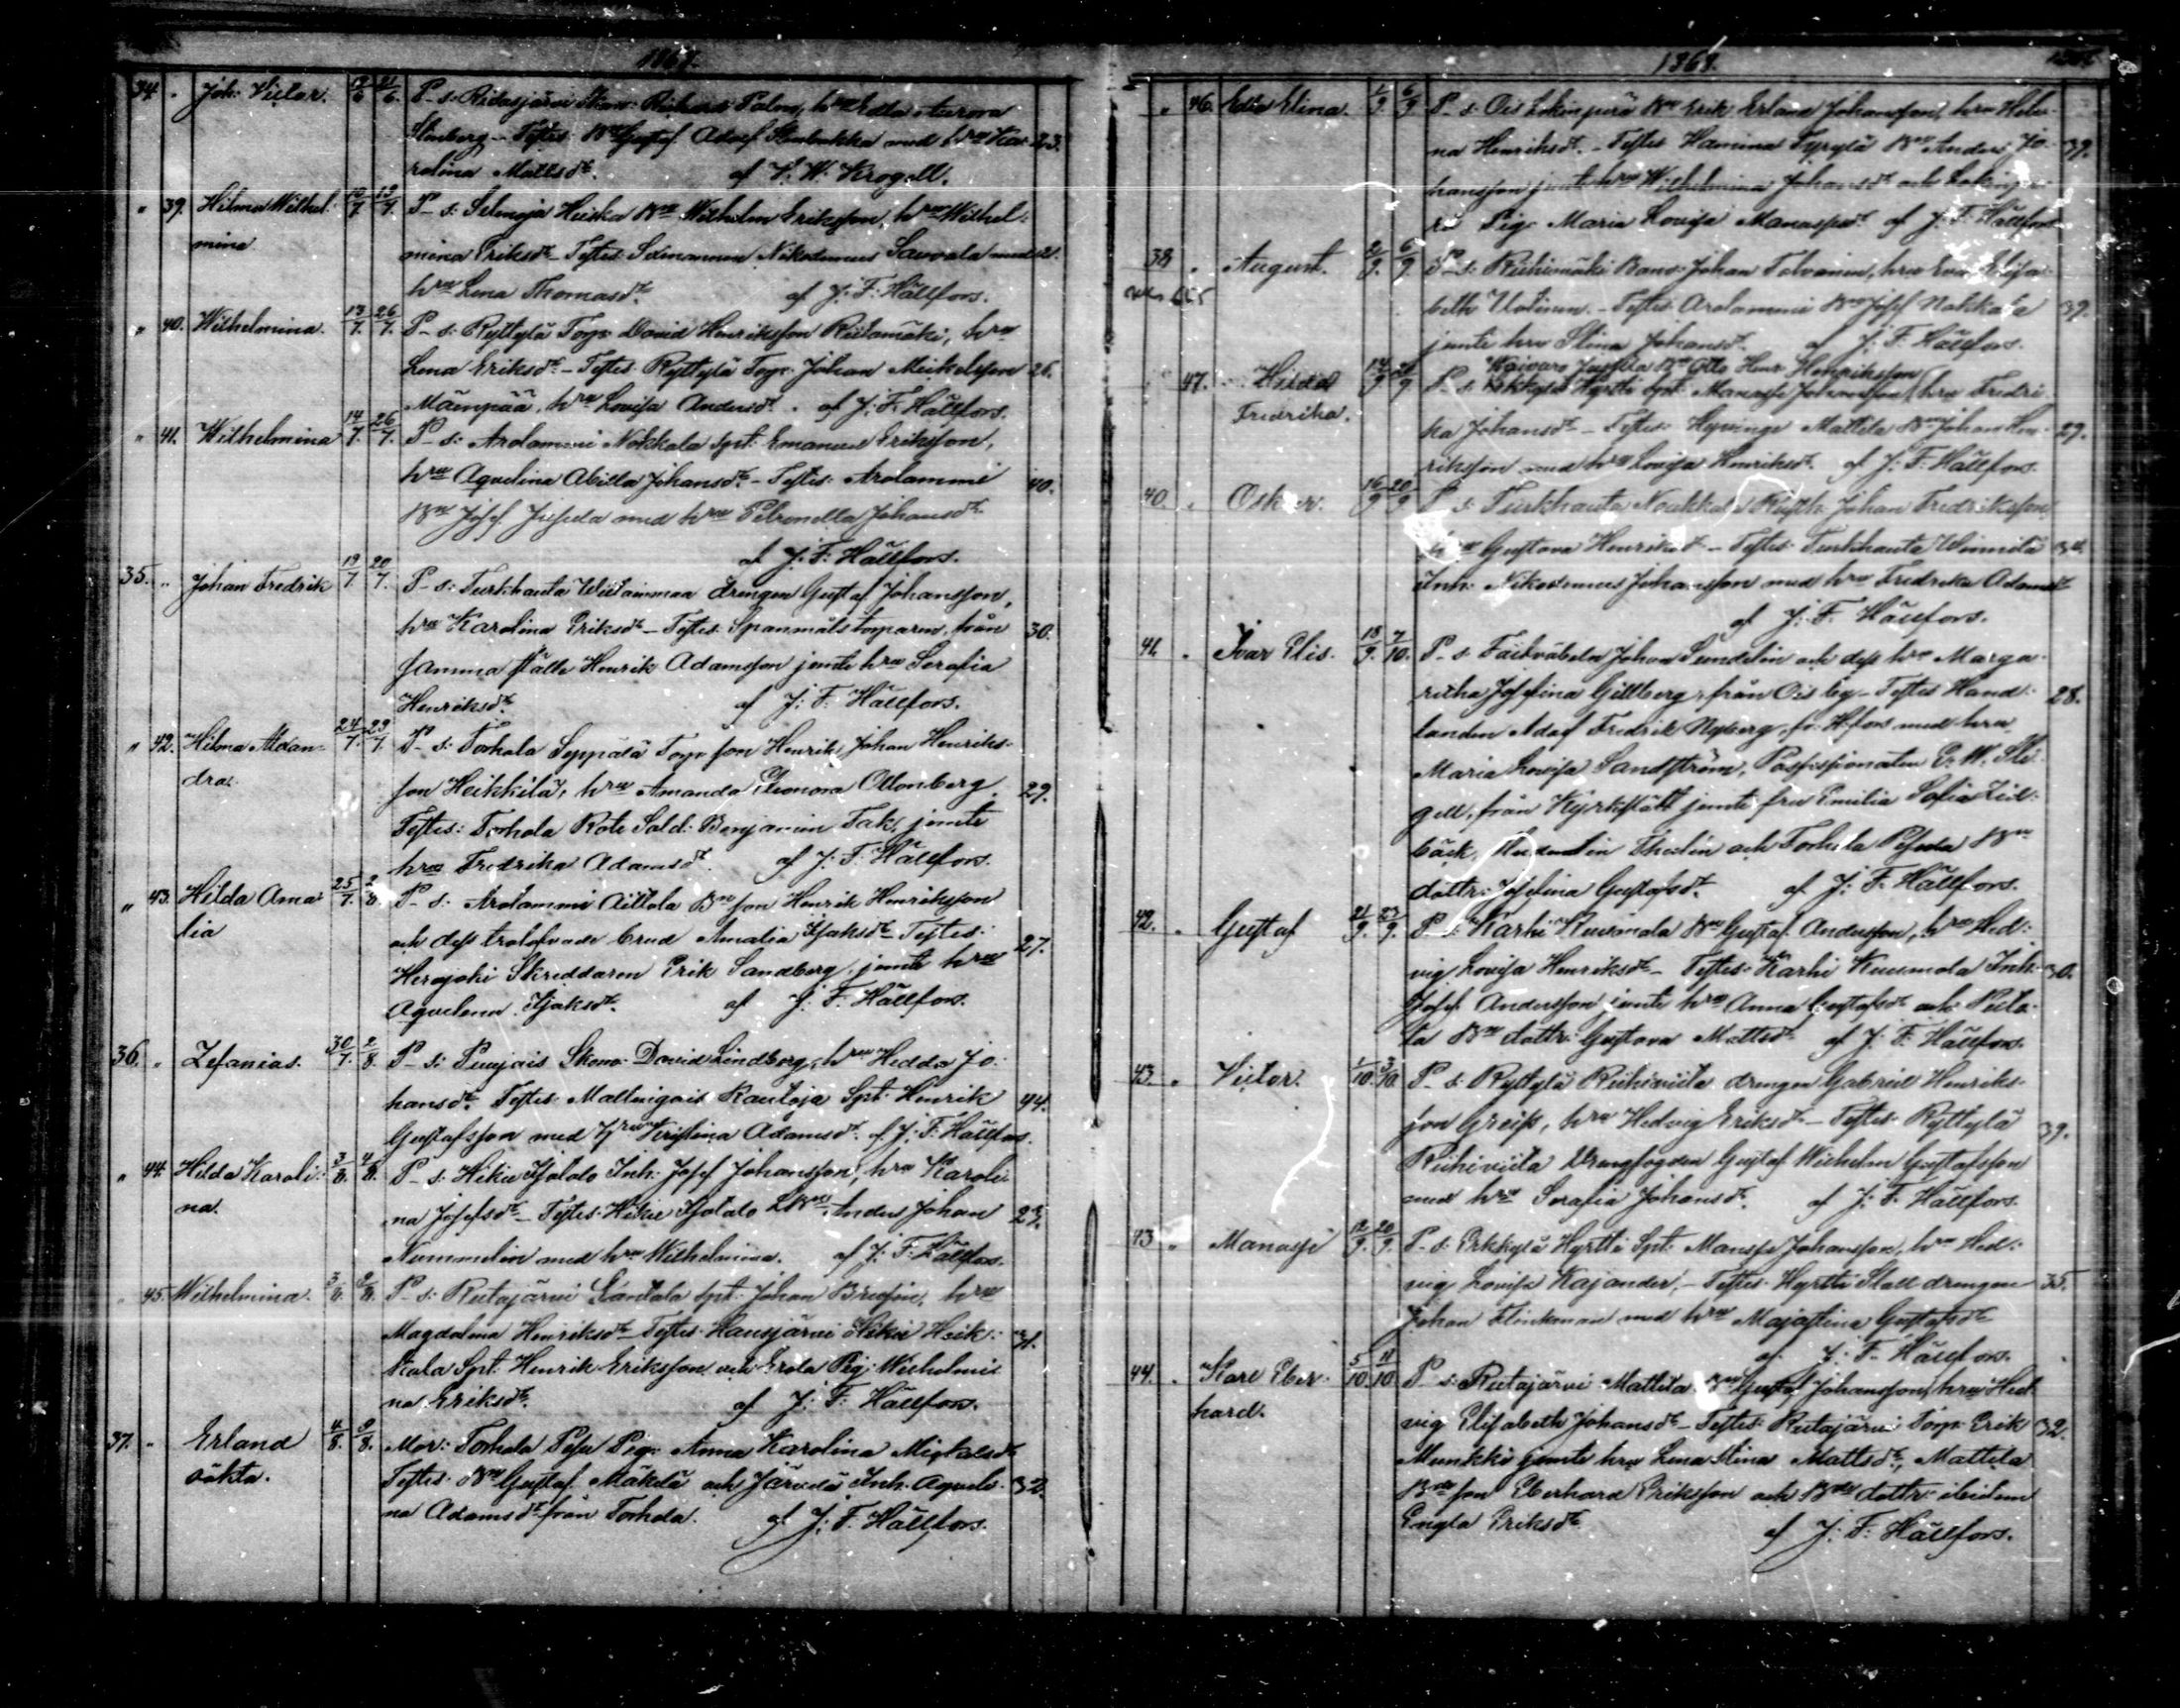 1868.
34. " Joh: Victor. 12/6 21/6. P_ s: Ridasjärvi Skom: Palm, hru Edla Aurora
Stenberg _ Testes: Bn Gustaf Adolf med hru Ka- 23.
rolina Mattsdr. af Krogell.
" 39. Hilma Wilhel- /7 19/7. P_ s: Selmoja Heiska Bn Wilhelm Eriksson, hru Wilhel-
mina mina Eriksdr _ Testes: Nikodemus Sauvala med
hru Lena Thomasdr. af J: F: Hällfors.
" 40. Wilhelmina. 13/7. 26/7. P_ s: Ryttylä Torp: David Henriksson Riitamäki, hru
Lena Eriksdr. _ Testes: Ryttylä Torp: Johan Mickelsson 26.
Mäenpää, hru Lovisa Andersdr. af J: F: Hällfors.
" 41. Wilhelmina 14/7. 26/7. P_ s: Arolammi Nokkala Spt: Emanuel Eriksson,
hru Aqvelina Abilla Johansdr. _ Testes: Arolammi 40.
Bn Josef Jussila med hru Petronella Johansdr
af J: F: Hällfors.
35. " Johan Fredrik 19/7 20/7. P_ s: Turkhauta drengen Gustaf Johansson,
hru Karolina Eriksdr _ Testes: Spanmåls torparen, från 30.
samma ställe Henrik Adamsson jemte hru Serafia
Henriksdr. af J: F: Hällfors.
" 42. Hilma Alexan- 24/7. 29/7. P_ s: Torhola Seppälä Torp: son Henrik Johan Henriks-
dra. son Heikkilä, hru Amanda Eleonora Ollonberg 29.
Testes: Torhola Rote Sold: Benjamin Tak, jemte
hru Fredrika Adamsdr. af J: F: Hällfors.
" 43. Hilda Ama- 25/7. 2/8. P_ s: Arolammi Aittola Bn son Henrik Henriksson
lia och dess trolofvade brud Amalia Isaksdr _ Testes: 27.
Herajoki Skreddaren Erik Sandberg jemte hru
Aqvelena Isaksdr. af J: F: Hällfors.
36. " Zefanias. 30/7. 2/8. P_ s: Puujais Skom: David Lindberg, hru Hedda Jo-
hansdr. Testes: Mallingais Rautoja Spt: Henrik 44.
Gustafsson med hru Kristina Adamsdr. af J: F: Hällfors.
" 44. Hilda Karoli- 3/8. 4/8. P_ s: Hikie Isotalo Inh: Josef Johansson, hru Karoli-
na. na Josefsdr _ Testes: Hikie Isotalo Anders Johan 23.
Nummelin med hru Wilhelmina. af J: F: Hällfors.
" 45. Wilhelmina. 3/8. 9/8. P_ s: Rutajärvi Santala Spt: Johan hru
Magdalena Henriksdr _ Testes: Hausjärvi Hikie Heik-
kala Spt: Henrik Eriksson och Erola Pig: Wilhelmi-
na Eriksdr. af J: F: Hällfors.
37. " Erland 4/8. 9/8. Mor: Torhola Pig: Anna Karolina
oäkta. Testes: Bn Gustaf Mäkelä och Järvelä Inh: Aqveli- 32.
na Adamsdr från Torhola. af J: F: Hällfors.
1868.
" 46. Edla Elina. 1/9. 6/9. P_ s: Ois Lokinperä Bn Erik Erland Johansson, hru Hele-
na Henriksdr. _ Testes: Hamina Bn Anders Jo- 39.
hansson jemte hru Wilhelmina Johansdr och Lokinpe-
rä Pig: Maria Lovisa Manassedr. af J: F: Hällfors
38 " August. 2/9. 6/9. P_ s: Riihimäki Banv: Johan Tolvanen, hru Eva Elisa-
beth _ Testes: Arolammi Bn Josef Nokkala 39.
jemte hru Stina Johansdr. af J: F: Hällfors.
Waivaro Jussila Bn Otto Henr: Henriksson
47. Hilda 14/9. 20/9. P_ s: Erkkylä Hyrtti Spt: Manasse Johansson, hru Fredri-
Fredrika. ka Johansdr _ Testes: Hyvinge Mattila Bn Johan Hen- 29.
riksson med hru Lovisa Henriksdr. af J: F: Hällfors.
40. " Oskar. 16/9 20/9 P_ s: Turkhauta Noukkala Rusth: Johan Fredriksson,
hru Gustava Henriksdr _ Testes: Turkhauta
Inh: Nikodemus Johansson med hru Fredrika Adamsdr
af J: F: Hällfors.
41. " Ivar Elis. 18/9. 7/10. P_ s: Fältväbeln Johan Sundelin och dess hru Marga-
retha Josefina Gillberg, från Ois by _ Testes: Hand- 28.
landen Adolf Fredrik Nyberg, fr: H:fors med hru
Maria Lovisa Sandström, Possessionaten
från Kyrkslätt jemte fru Emilia Sofia
bäck, Studentin Thelin och Torhola Bn
dottr: Josefina Gustafsdr. af J: F: Hällfors.
42. " Gustaf 21/9. 23/9. P_ s: Karhi Kuusmola Bn Gustaf Andersson, hru Hed-
vig Lovisa Henriksdr _ Testes: Karhi Kuusmola Inh: 30.
Josef Andersson jemte hru Anna Gustafsdr och
la Bn dottr: Gustava Mattsdr af J: F: Hällfors.
43. " Victor. 1/10. 3/10. P_ s: Ryttylä Riihiviita drengen Gabriel Henriks-
son Greiss, hru Hedvig Eriksdr _ Testes: Ryttylä 39.
Riihiviita Drengfogden Gustaf Wilhelm Gustafsson
med hru Serafia Johansdr. af J: F: Hällfors.
43 " Manasse 12/9. 20/9. P_ s: Erkkylä Hyrtti Spt: Manasse Johansson, hru Hed-
vig Lovisa Kajander, _ Testes: Hyrtti Stall drengen 35.
Johan Flinkman med hru Majastina Gustafsdr
af J: F: Hällfors.
44. " Karl Eber- 5/10 11/10 P_ s: Rutajärvi Mattila Bn Gustaf Johansson, hru Hed-
hard. vig Elisabeth Johansdr _ Testes: Rutajärvi Torp: Erik 32.
Munkki jemte hru Lena Stina Mattsdr, Mattila
Bn son Eberhard Eriksson och Bn dottr: ibidem
Engla Eriksdr af J: F: Hällfors.